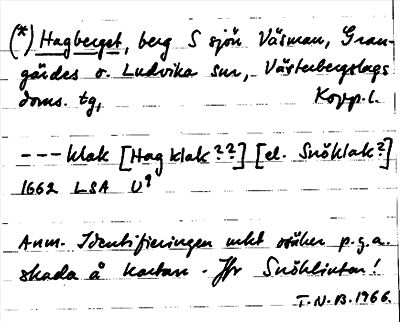 (*) Hagberget, berg S sjön Väsman, Gran-
gärdes o. Ludvika snr, Västerbergslags
doms. tg,
Kopp.l.
--- klak [Hag klak??] [el. Snöklak?]
1662 LSA U9
Anm. Identifieringen mkt osäker p.g.a.
skada å kartan. Jfr Snöklintan!
T.N.B. 1966.